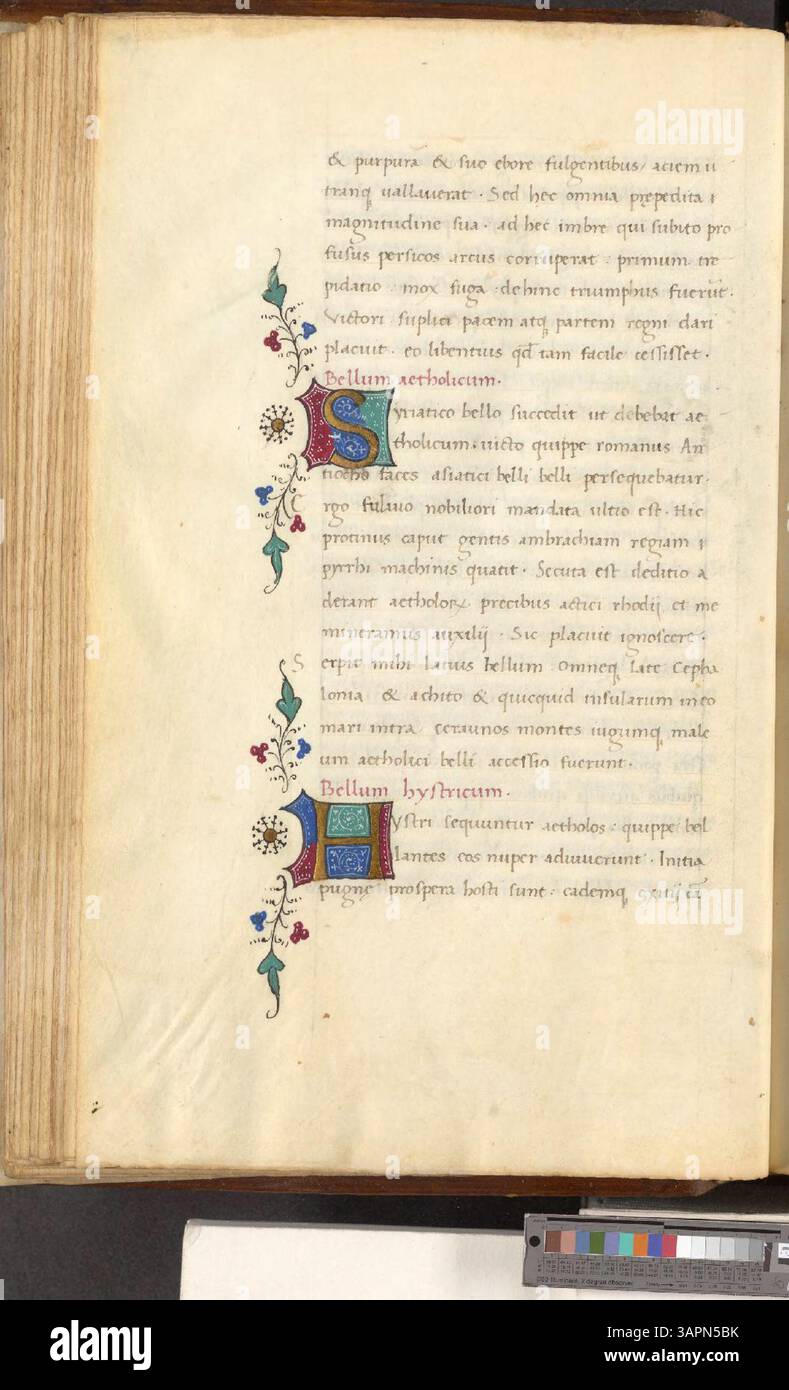 & purpura & suo ebore fulgentibus / aciem u
tranq; vallaverat · Sed hec omnia prępedita ı
magnitudine sua · ad hec imbre qui subito pro
fusus persicos arcus corruperat : primum tre
pidatio : mox fuga · dehinc triumphus fuerūt ·
Victori suplici pacem atq; partem regni dari
placuit · eo libentius qđ tam facile cessisset ·
Bellum aetholicum ·
Syriatico bello succedit ut debebat ae
tholicum · victo quippe romanus An
tiocho faces asiatici belli belli persequebatur ·
Ergo fulvio nobiliori mandata ultio est · Hic
protinus caput gentis ambrachiam regiam ı
pyrrhi machinis quatit · Secuta est deditio a
derant aetholoꝝ precibus actici rhodij et me
mineramus auxilij · Sic placuit ignoscere ·
Serpit mihi latius bellum omneq; late Cepha
lonia & achito & quicquid insularum in eo
mari intra ceraunos montes iugumq; male
um aetholici belli accessio fuerunt ·
Bellum hystricum ·
Hystri sequuntur aetholos : quippe bel
lantes eos nuper adiuverunt · Initia
pugnę prospera hosti sunt : eademq; exitij cā
alamy
Image ID: 3APN5BK
www.alamy.com